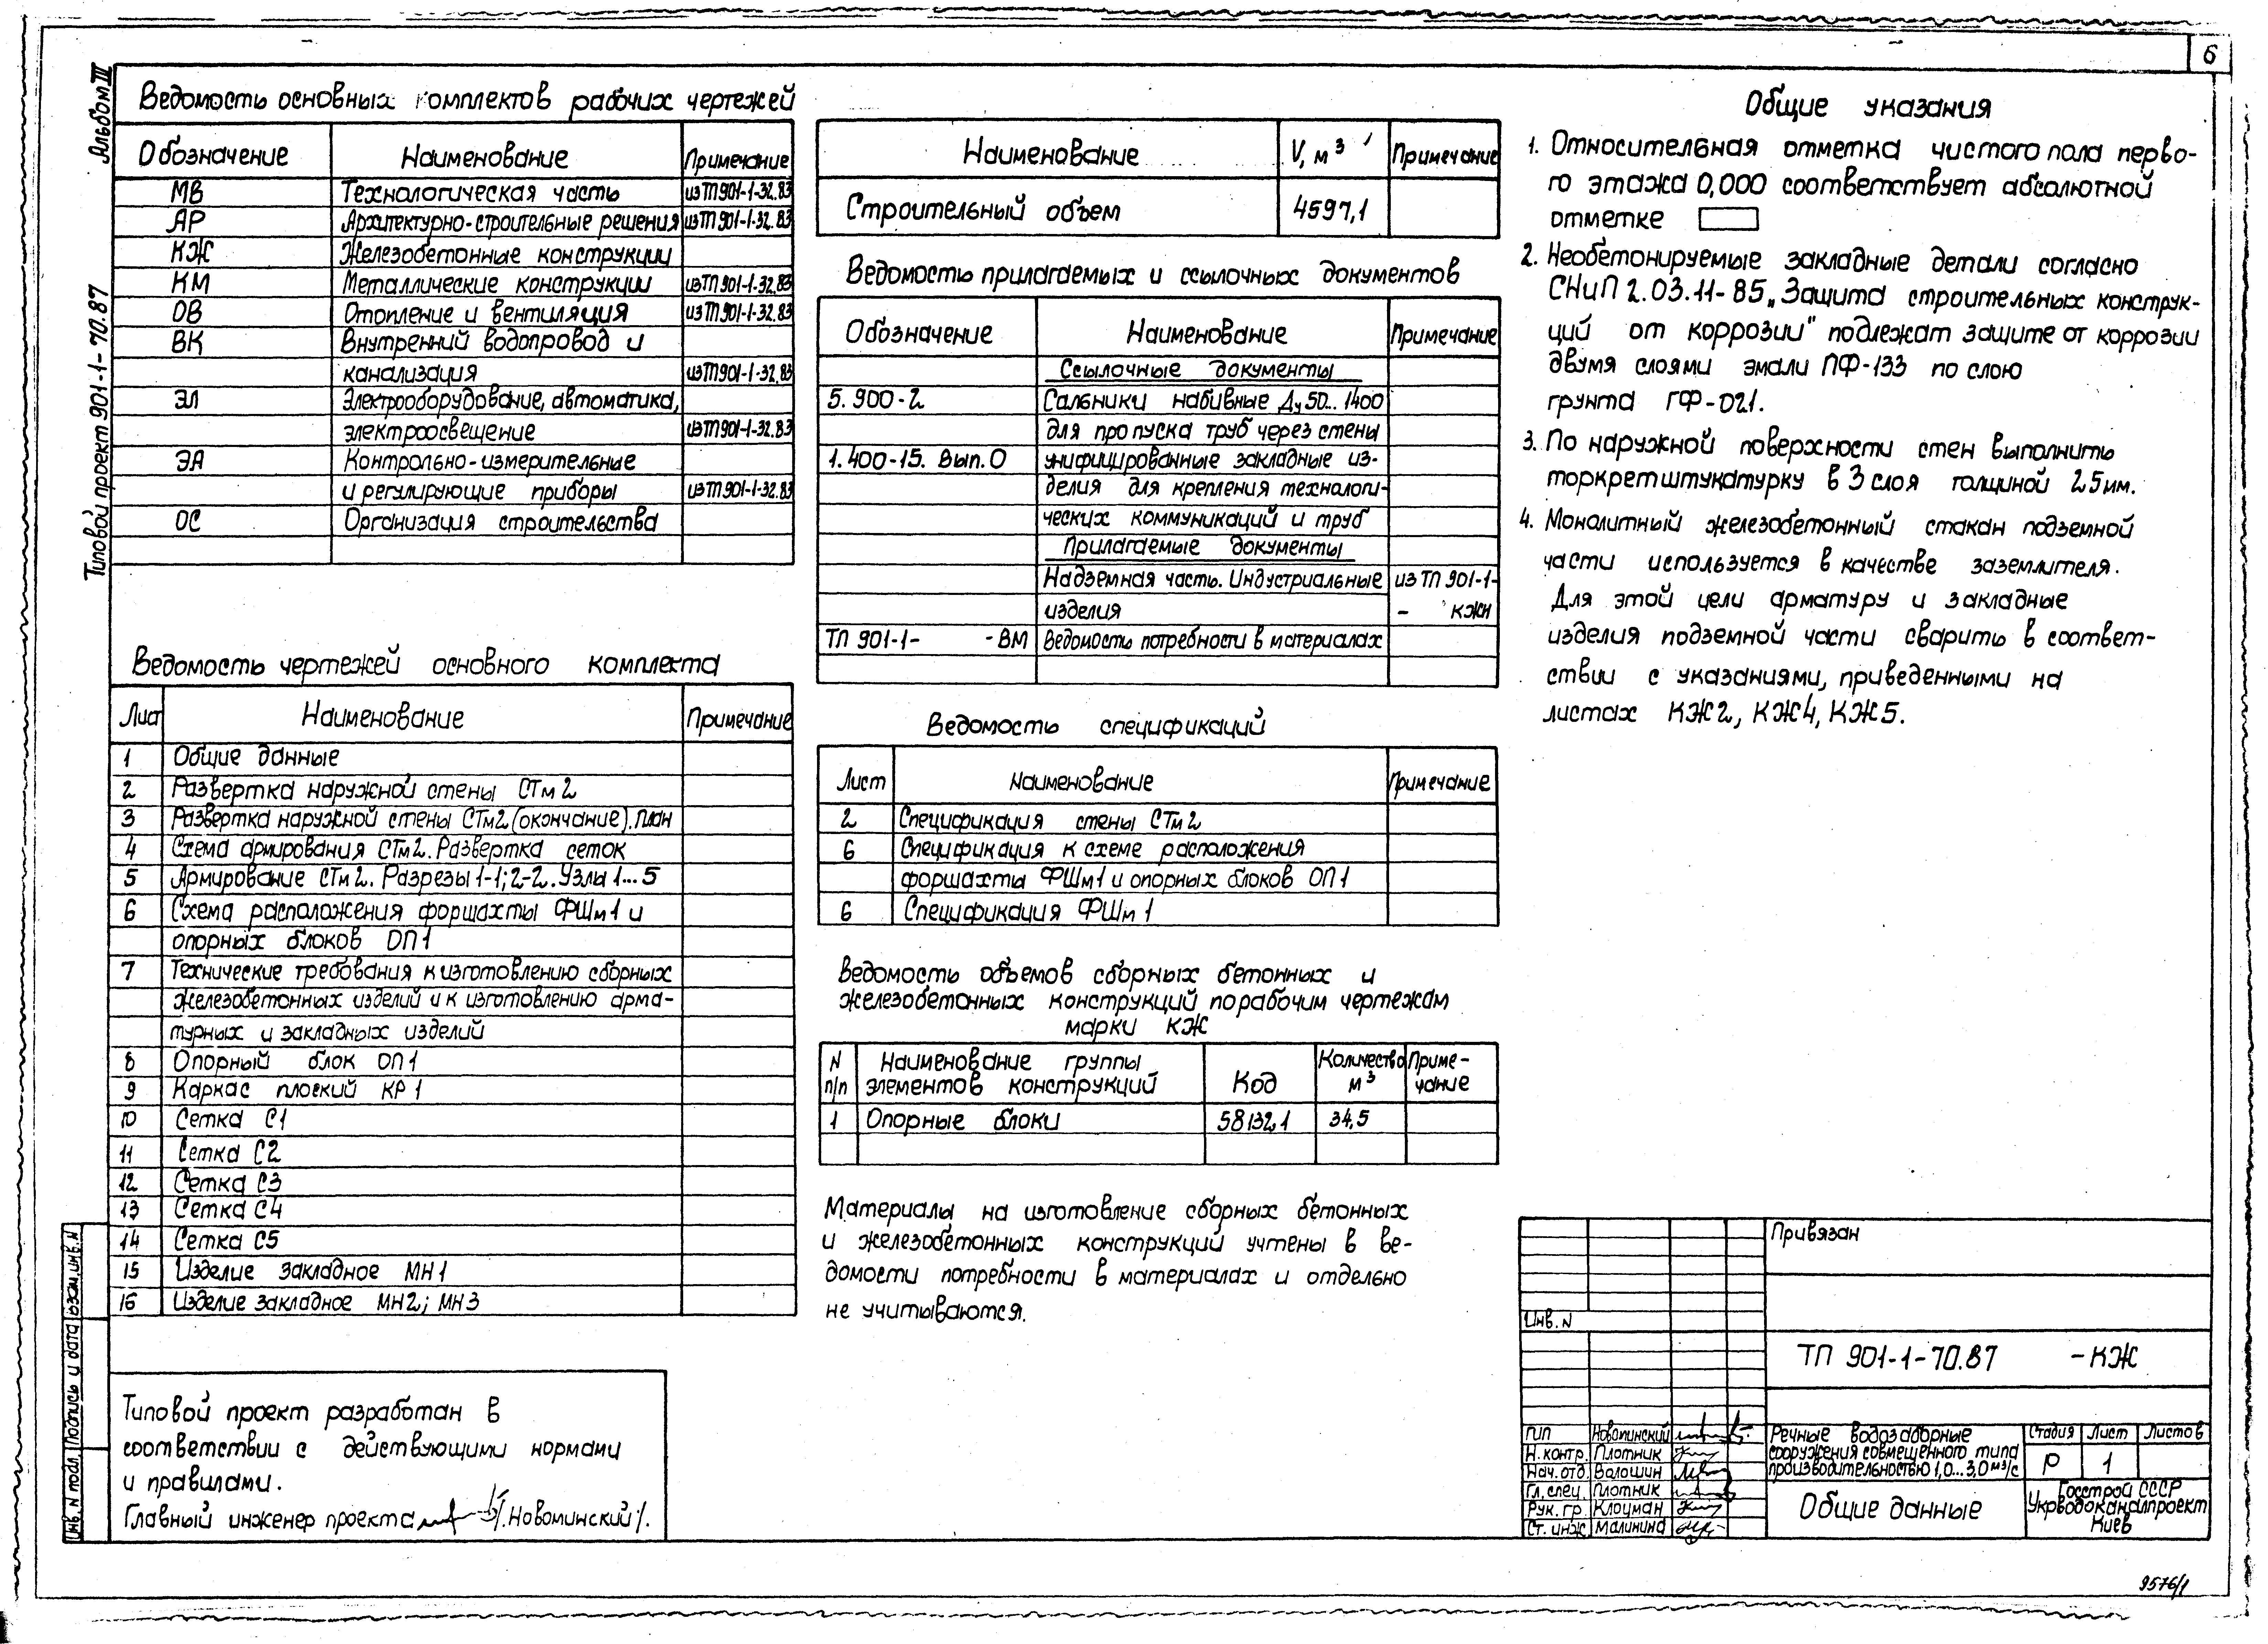 6
Альбом III
Типовой проект 901-1-70.87
Ведомость основных комплектов рабочих чертежей
Обозначение Наименование Примечание
МВ Технологическая часть из ТП901-1-32.83
АР Архитектурно-строительные решения из ТП901-1-32.83
КЖ Железобетонные конструкции
КМ Металлические конструкции из ТП901-1-32.83
ОВ Отопление и вентиляция из ТП901-1-32.83
ВК Внутренний водопровод и
канализация из ТП901-1-32.83
ЭЛ Электрооборудование, автоматика,
электроосвещение из ТП901-1-32.83
ЭА Контрольно-измерительные
и регулирующие приборы из ТП901-1-32.83
ОС Организация строительства
Ведомость чертежей основного комплекта
Лист Наименование Примечание
1 Общие данные
2 Развертка наружной стены СТм2
3 Развертка наружной стены СТм2 (окончание). План
4 Схема армирования СТм2. Развертка сеток
5 Армирование СТм2. Разрезы 1-1; 2-2. Узлы 1...5
6 Схема расположения форшахты ФШм1 и
опорных блоков ОП1
7 Технические требования к изготовлению сборных
железобетонных изделий и к изготовлению арма-
турных и закладных изделий
8 Опорный блок ОП1
9 Каркас плоский КР1
10 Сетка С1
11 Сетка С2
12 Сетка С3
13 Сетка С4
14 Сетка С5
15 Изделие закладное МН1
16 Изделие закладное МН2; МН3
Типовой проект разработан в
соответствии с действующими нормами
и правилами.
Главный инженер проекта /Новоминский/.
Наименование V, м³ Примечание
Строительный объем 4597,1
Ведомость прилагаемых и ссылочных документов
Обозначение Наименование Примечание
Ссылочные документы
5.900-2 Сальники набивные Ду50...1400
для пропуска труб через стены
1.400-15. Вып.0 унифицированные закладные из-
делия для крепления технологи-
ческих коммуникаций и труб
Прилагаемые документы
Надземная часть. Индустриальные из ТП 901-1-
изделия - КЖИ
ТП 901-1- -ВМ Ведомость потребности в материалах
Ведомость спецификаций
Лист Наименование Примечание
2 Спецификация стены СТм2
6 Спецификация к схеме расположения
форшахты ФШм1 и опорных блоков ОП1
6 Спецификация ФШм1
Ведомость объемов сборных бетонных и
железобетонных конструкций по рабочим чертежам
марки КЖ
N п/п Наименование группы элементов конструкций Код Количество м³ Приме-чание
1 Опорные блоки 58132,1 34,5
Материалы на изготовление сборных бетонных
и железобетонных конструкций учтены в ве-
домости потребности в материалах и отдельно
не учитываются.
Общие указания
1. Относительная отметка чистого пола перво-
го этажа 0,000 соответствует абсолютной
отметке
2. Необетонируемые закладные детали согласно
СНиП 2.03.11-85 „Защита строительных конструк-
ций от коррозии" подлежат защите от коррозии
двумя слоями эмали ПФ-133 по слою
грунта ГФ-021.
3. По наружной поверхности стен выполнить
торкретштукатурку в 3 слоя толщиной 25мм.
4. Монолитный железобетонный стакан подземной
части используется в качестве заземлителя.
Для этой цели арматуру и закладные
изделия подземной части сварить в соответ-
ствии с указаниями, приведенными на
листах КЖ2, КЖ4, КЖ5.
Привязан
Инв. N
ТП 901-1-70.87 -КЖ
ГИП Новоминский
Н.контр. Плотник
Нач.отд. Волошин
Гл.спец. Плотник
Рук. гр. Клоцман
Ст. инж Малинина
Речные водозаборные
сооружения совмещенного типа
производительностью 1,0...3,0 м³/с
Стадия Лист Листов
Р 1
Общие данные
Госстрой СССР
Укрводоканалпроект
Киев
Инв. N подл. Подпись и дата Взам.инв.N
9576/1